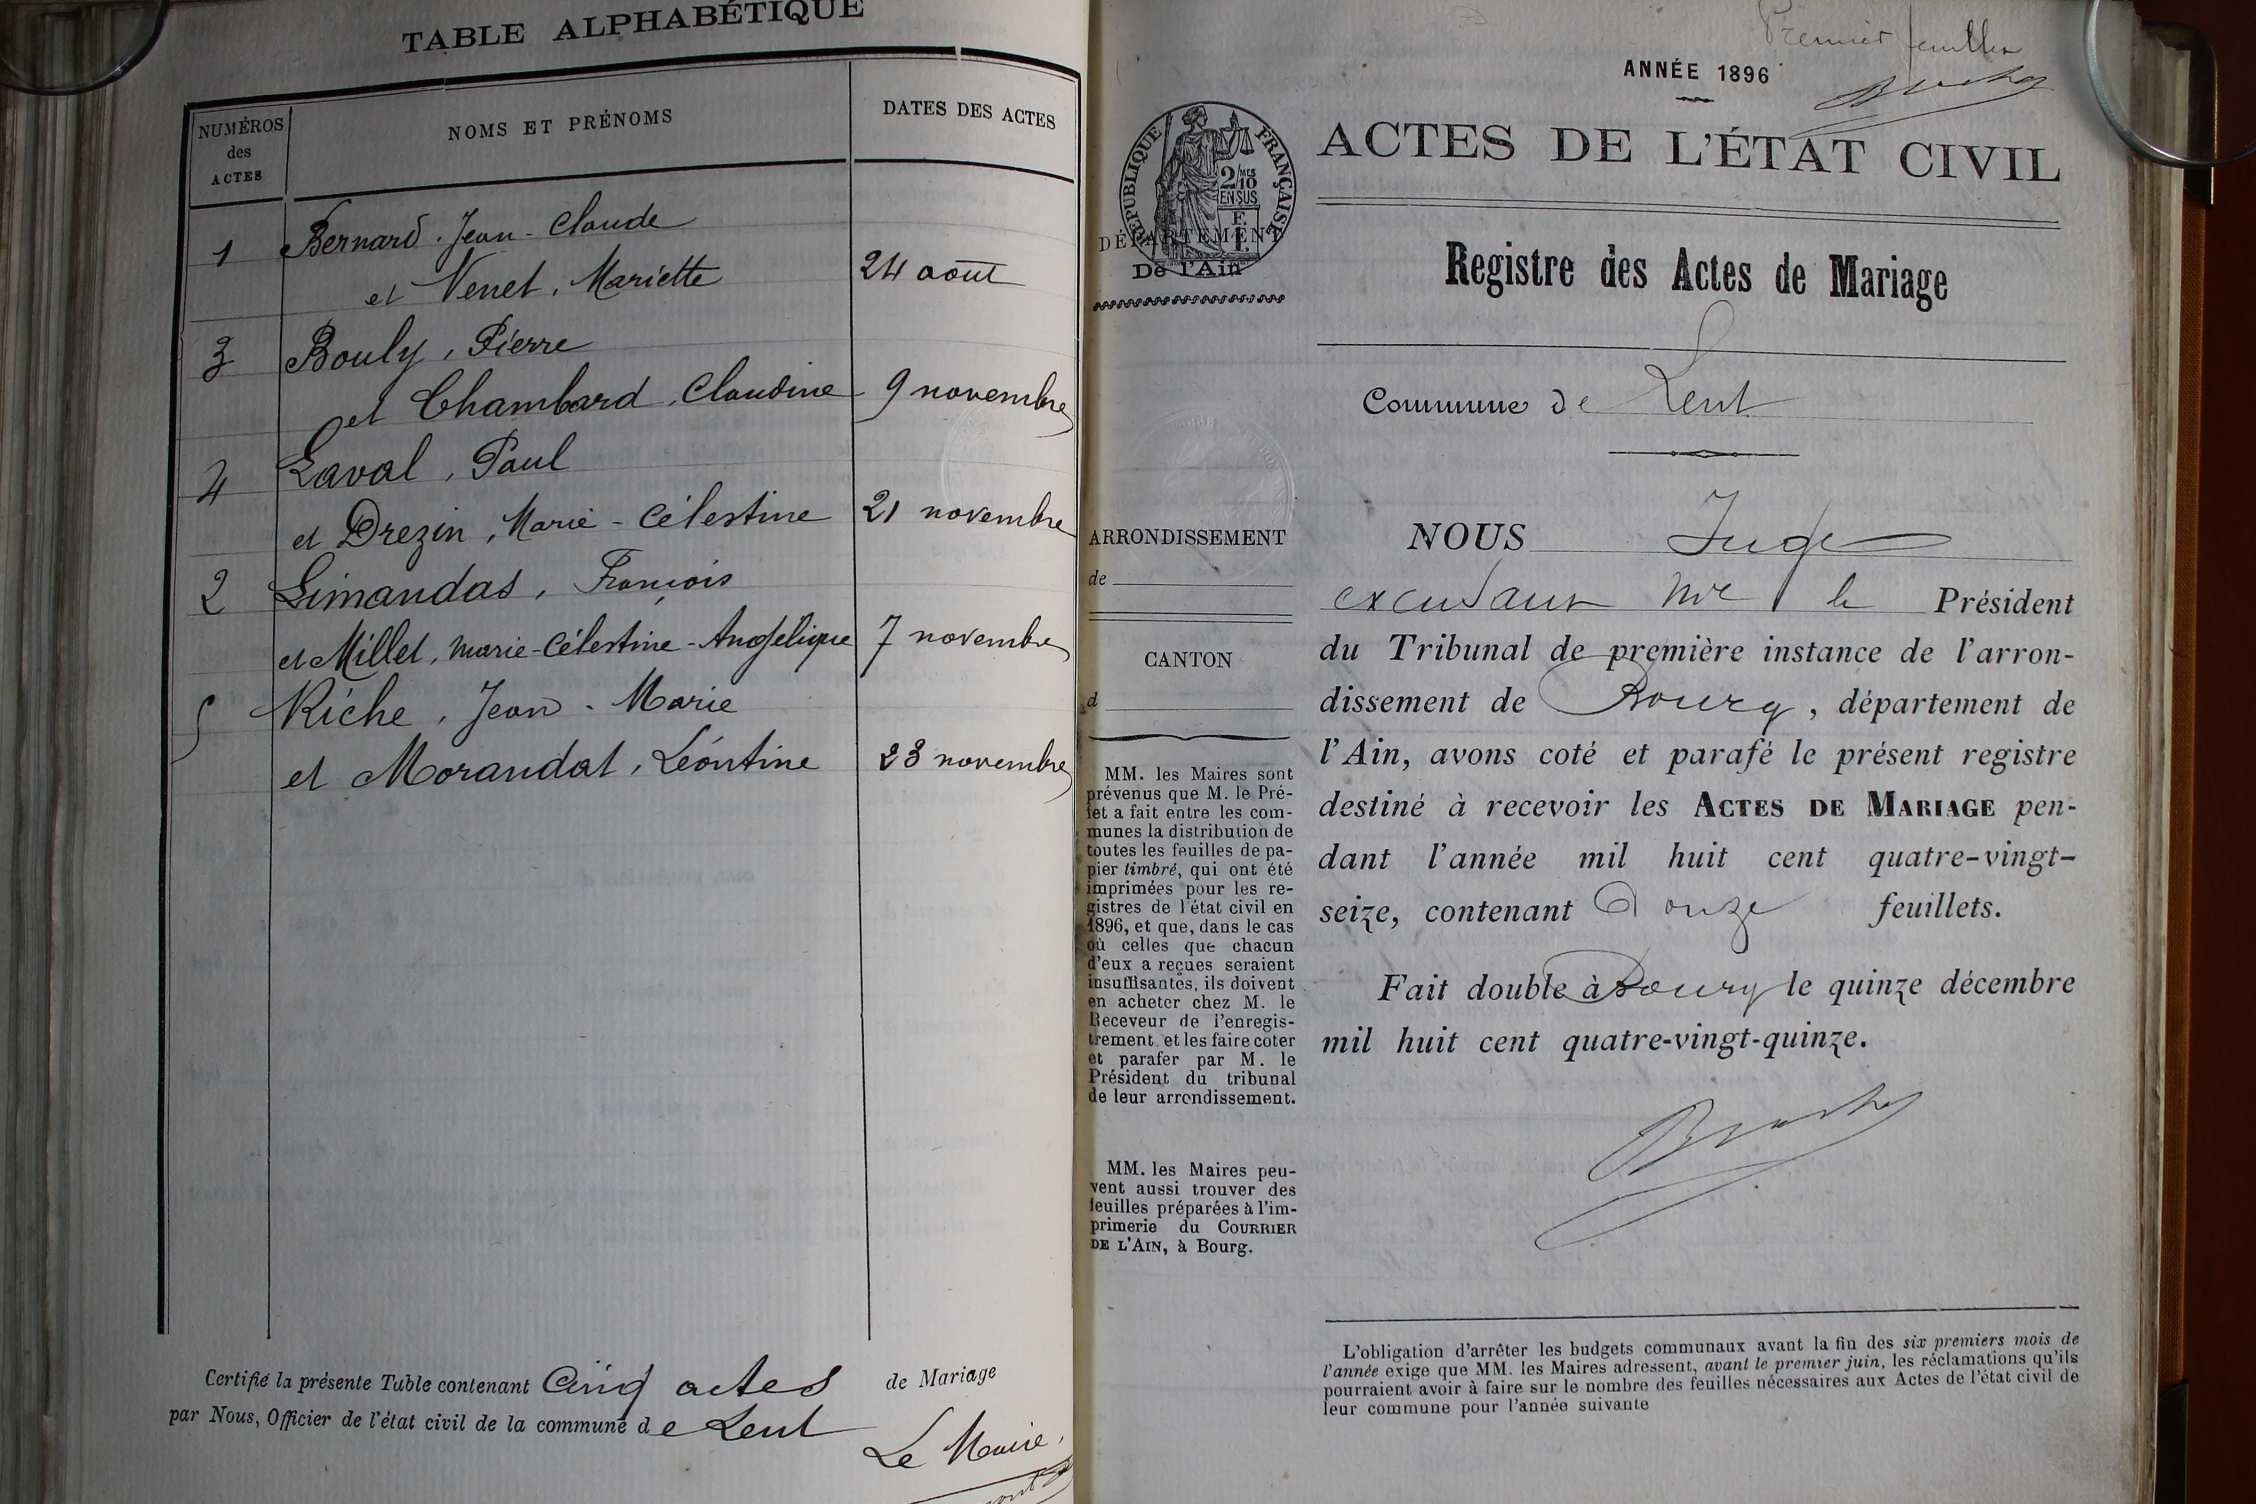 TABLE ALPHABÉTIQUE
NUMÉROS des ACTES
NOMS ET PRÉNOMS
DATES DES ACTES
1 Bernard, Jean-Claude
et Venet, Mariette 24 août
3 Bouly, Pierre
et Chambard, Claudine 9 novembre
4 Laval, Paul
et Drezin, Marie-Célestine 21 novembre
2 Limandas, François
et Millet, Marie-Célestine-Angélique 7 novembre
5 Riche, Jean-Marie
et Morandat, Léontine 23 novembre
Certifié la présente Table contenant Cinq actes de Mariage
par Nous, Officier de l'état civil de la commune de Lent
Le Maire,
Premier feuillet
ANNÉE 1896
ACTES DE L'ÉTAT CIVIL
RÉPUBLIQUE FRANÇAISE
2/10MES
EN SUS
DÉPARTEMENT
De l'Ain
Registre des Actes de Mariage
Commune de Lent
ARRONDISSEMENT
de
CANTON
d
MM. les Maires sont
prévenus que M. le Pré-
fet a fait entre les com-
munes la distribution de
toutes les feuilles de pa-
pier timbré, qui ont été
imprimées pour les re-
gistres de l'état civil en
1896, et que, dans le cas
où celles que chacun
d'eux a reçues seraient
insuffisantes, ils doivent
en acheter chez M. le
Receveur de l'enregis-
trement et les faire coter
et parafer par M. le
Président du tribunal
de leur arrondissement.
MM. les Maires peu-
vent aussi trouver des
feuilles préparées à l'im-
primerie du COURRIER
DE L'AIN, à Bourg.
NOUS Juge
le Président
du Tribunal de première instance de l'arron-
dissement de Bourg, département de
l'Ain, avons coté et parafé le présent registre
destiné à recevoir les ACTES DE MARIAGE pen-
dant l'année mil huit cent quatre-vingt-
seize, contenant Douze feuillets.
Fait double à Bourg le quinze décembre
mil huit cent quatre-vingt-quinze.
L'obligation d'arrêter les budgets communaux avant la fin des six premiers mois de
l'année exige que MM. les Maires adressent, avant le premier juin, les réclamations qu'ils
pourraient avoir à faire sur le nombre des feuilles nécessaires aux Actes de l'état civil de
leur commune pour l'année suivante